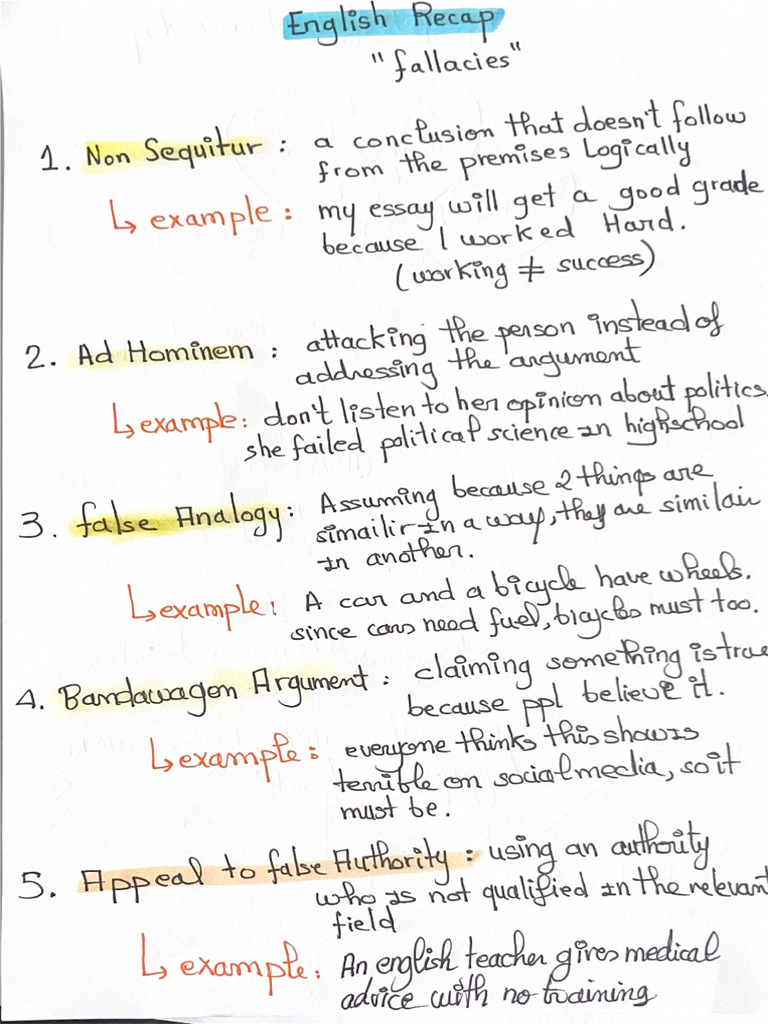 English Recap
"fallacies"
1. Non Sequitur : a conclusion that doesn't follow
from the premises Logically
↳ example : my essay will get a good grade
because I worked Hard.
(working ≠ success)
2. Ad Hominem : attacking the person instead of
addressing the argument
↳ example: don't listen to her opinion about politics.
she failed political science in highschool
3. false Analogy : Assuming because 2 things are
simailir in a way, they are similair
in another.
↳ example: A car and a bicycle have wheels.
since cars need fuel, bicycles must too.
4. Bandawagon Argument : claiming something is true
because ppl believe it.
↳ example : everyone thinks this show is
terrible on social media, so it
must be.
5. Appeal to false Authority : using an authority
who is not qualified in the relevant
field
↳ example: An english teacher gives medical
advice with no training